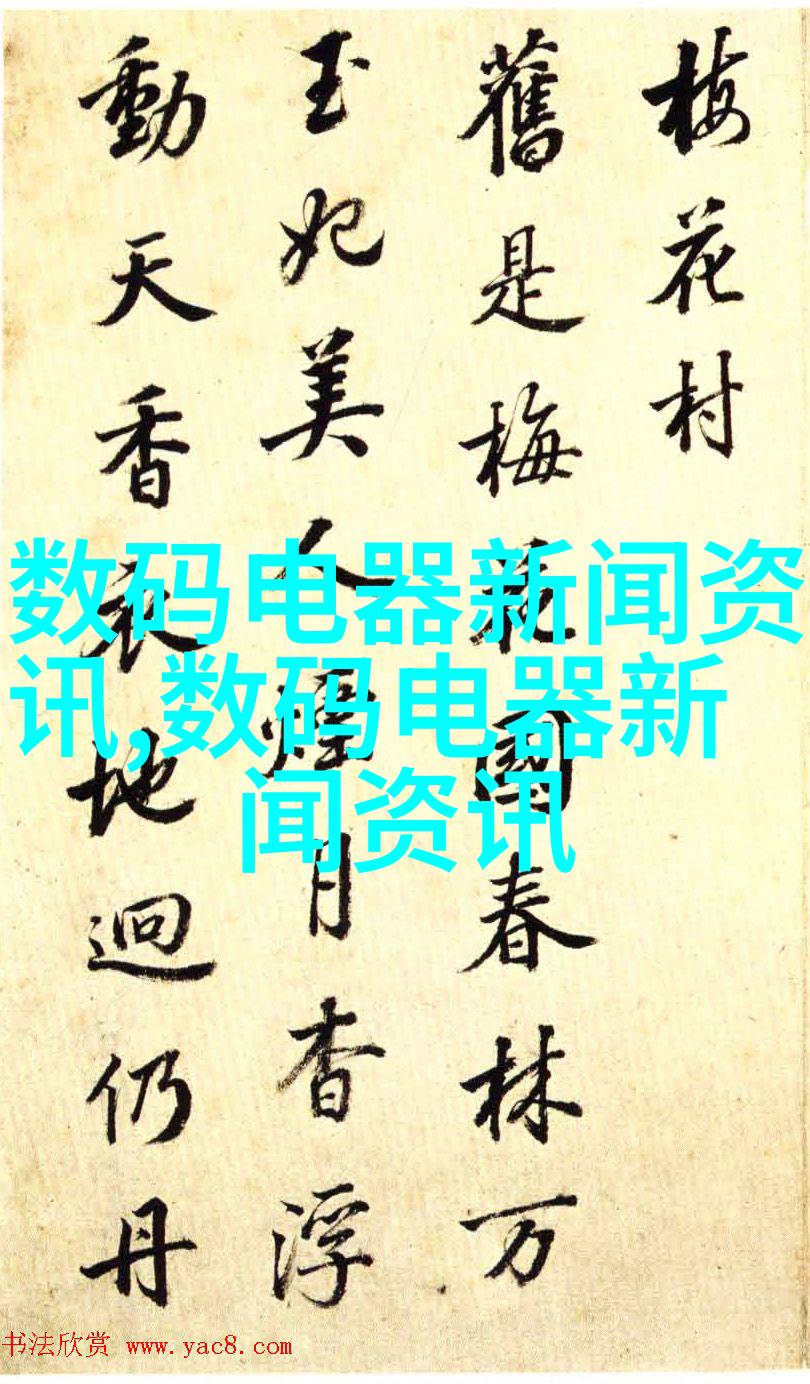 梅花村
舊是梅花國春林万
玉妃美人煙月杳浮
動天香衣地迥仍丹
数码电器新闻资
讯,数码电器新
闻资讯
书法欣赏 www.yac8.com